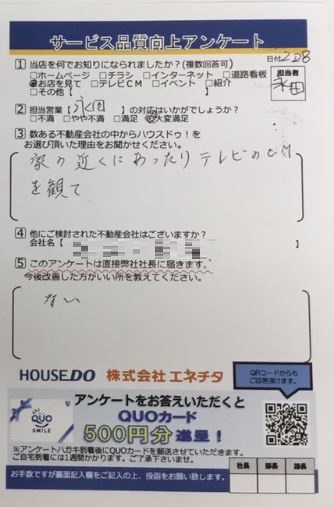 サービス品質向上アンケート
日付 2.28
① 当店を何でお知りになられましたか?(複数回答可)
□ホームページ □チラシ □インターネット □道路看板
□お店を見て □テレビCM □イベント □紹介
□その他【 】
担当者
永田
② 担当営業【永田】の対応はいかがでしょうか?
□不満 □やや不満 □満足 □大変満足
③ 数ある不動産会社の中からハウスドゥ!を
お選び頂いた理由をお聞かせください。
家の近くにあったりテレビのCM
を観て
④ 他にご検討された不動産会社はございますか?
会社名【 】
⑤ このアンケートは直接弊社社長に届きます。
今後改善した方がいい所を教えてください。
ない
HOUSEDO 株式会社 エネチタ
QRコードからも
ご回答頂けます。
アンケートをお答えいただくと
QUOカード
500円分進呈!
QUO
SMILE
※アンケートハガキ到着後にQUOカードを郵送させていただきます。
ご自宅到着には1週間かかります。ご了承下さいませ。
お手数ですが裏面記入欄をご記入の上、投函をお願い致します。
社長 部長 課長